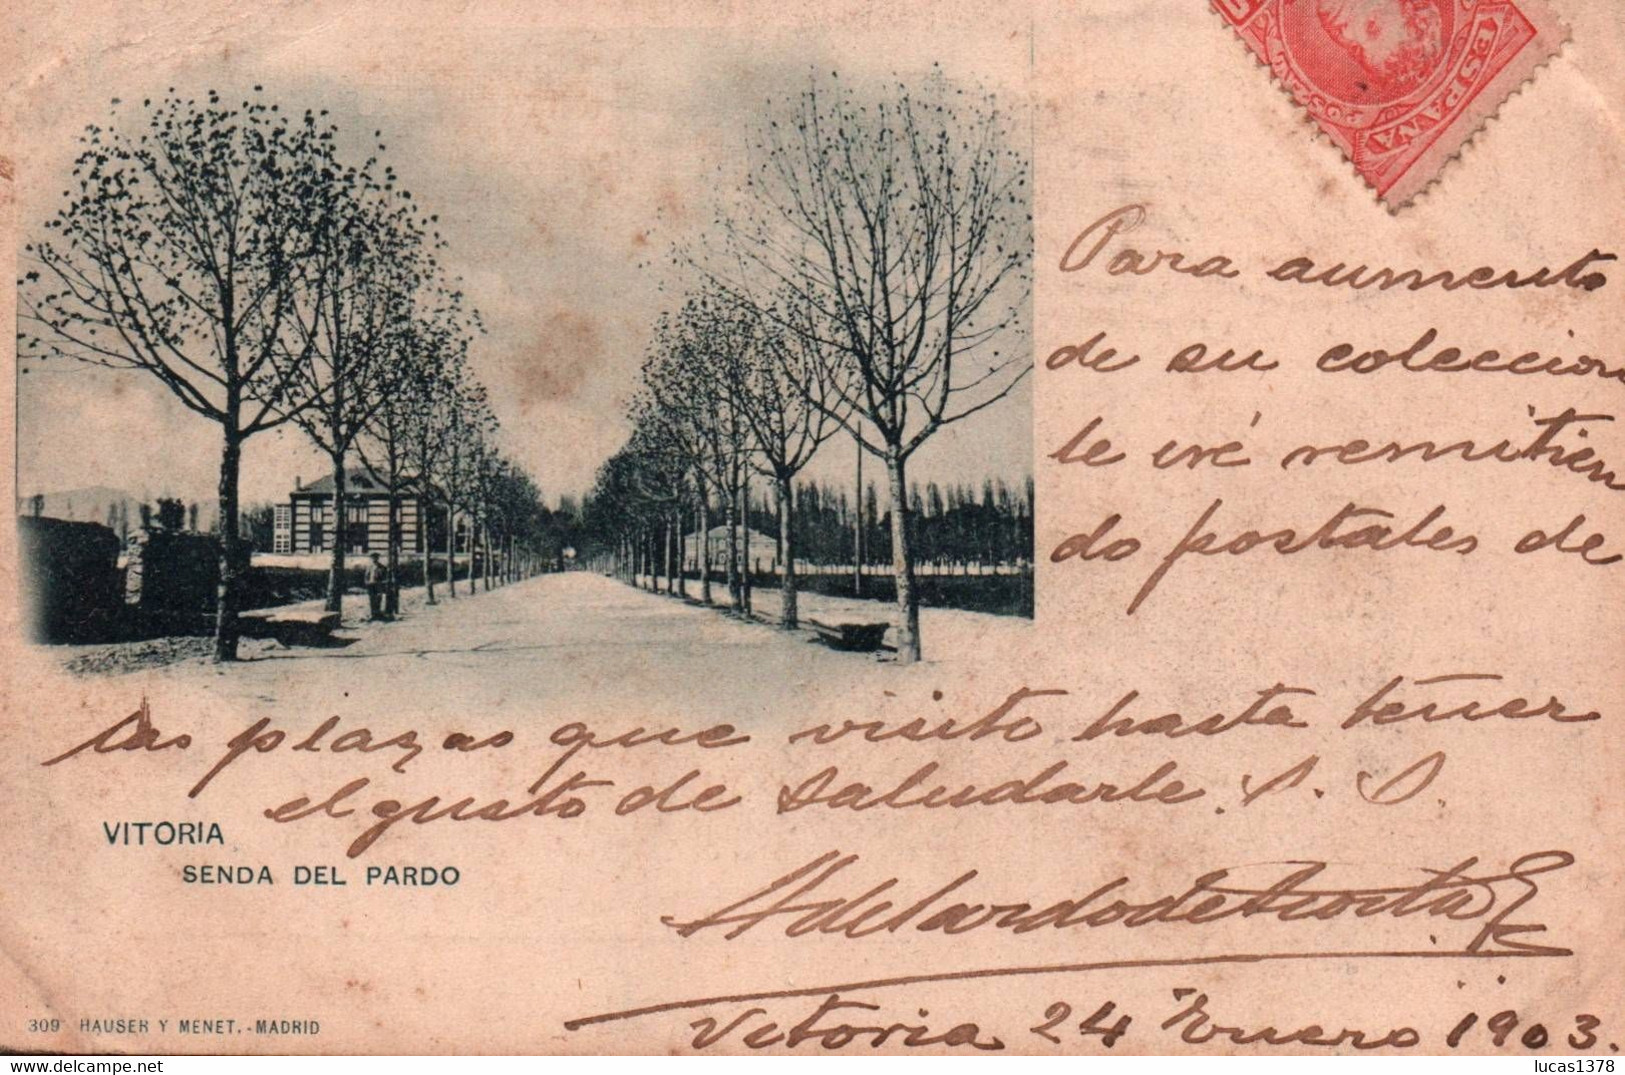 ESPAÑA
Para aumento
de su coleccion
le iré remitien
do postales de
las plazas que visito hasta tener
el gusto de saludarle S. S.
VITORIA
SENDA DEL PARDO
Adelardo de
Vitoria 24 Enero 1903.
309 HAUSER Y MENET.-MADRID
delcampe.net
lucas1378